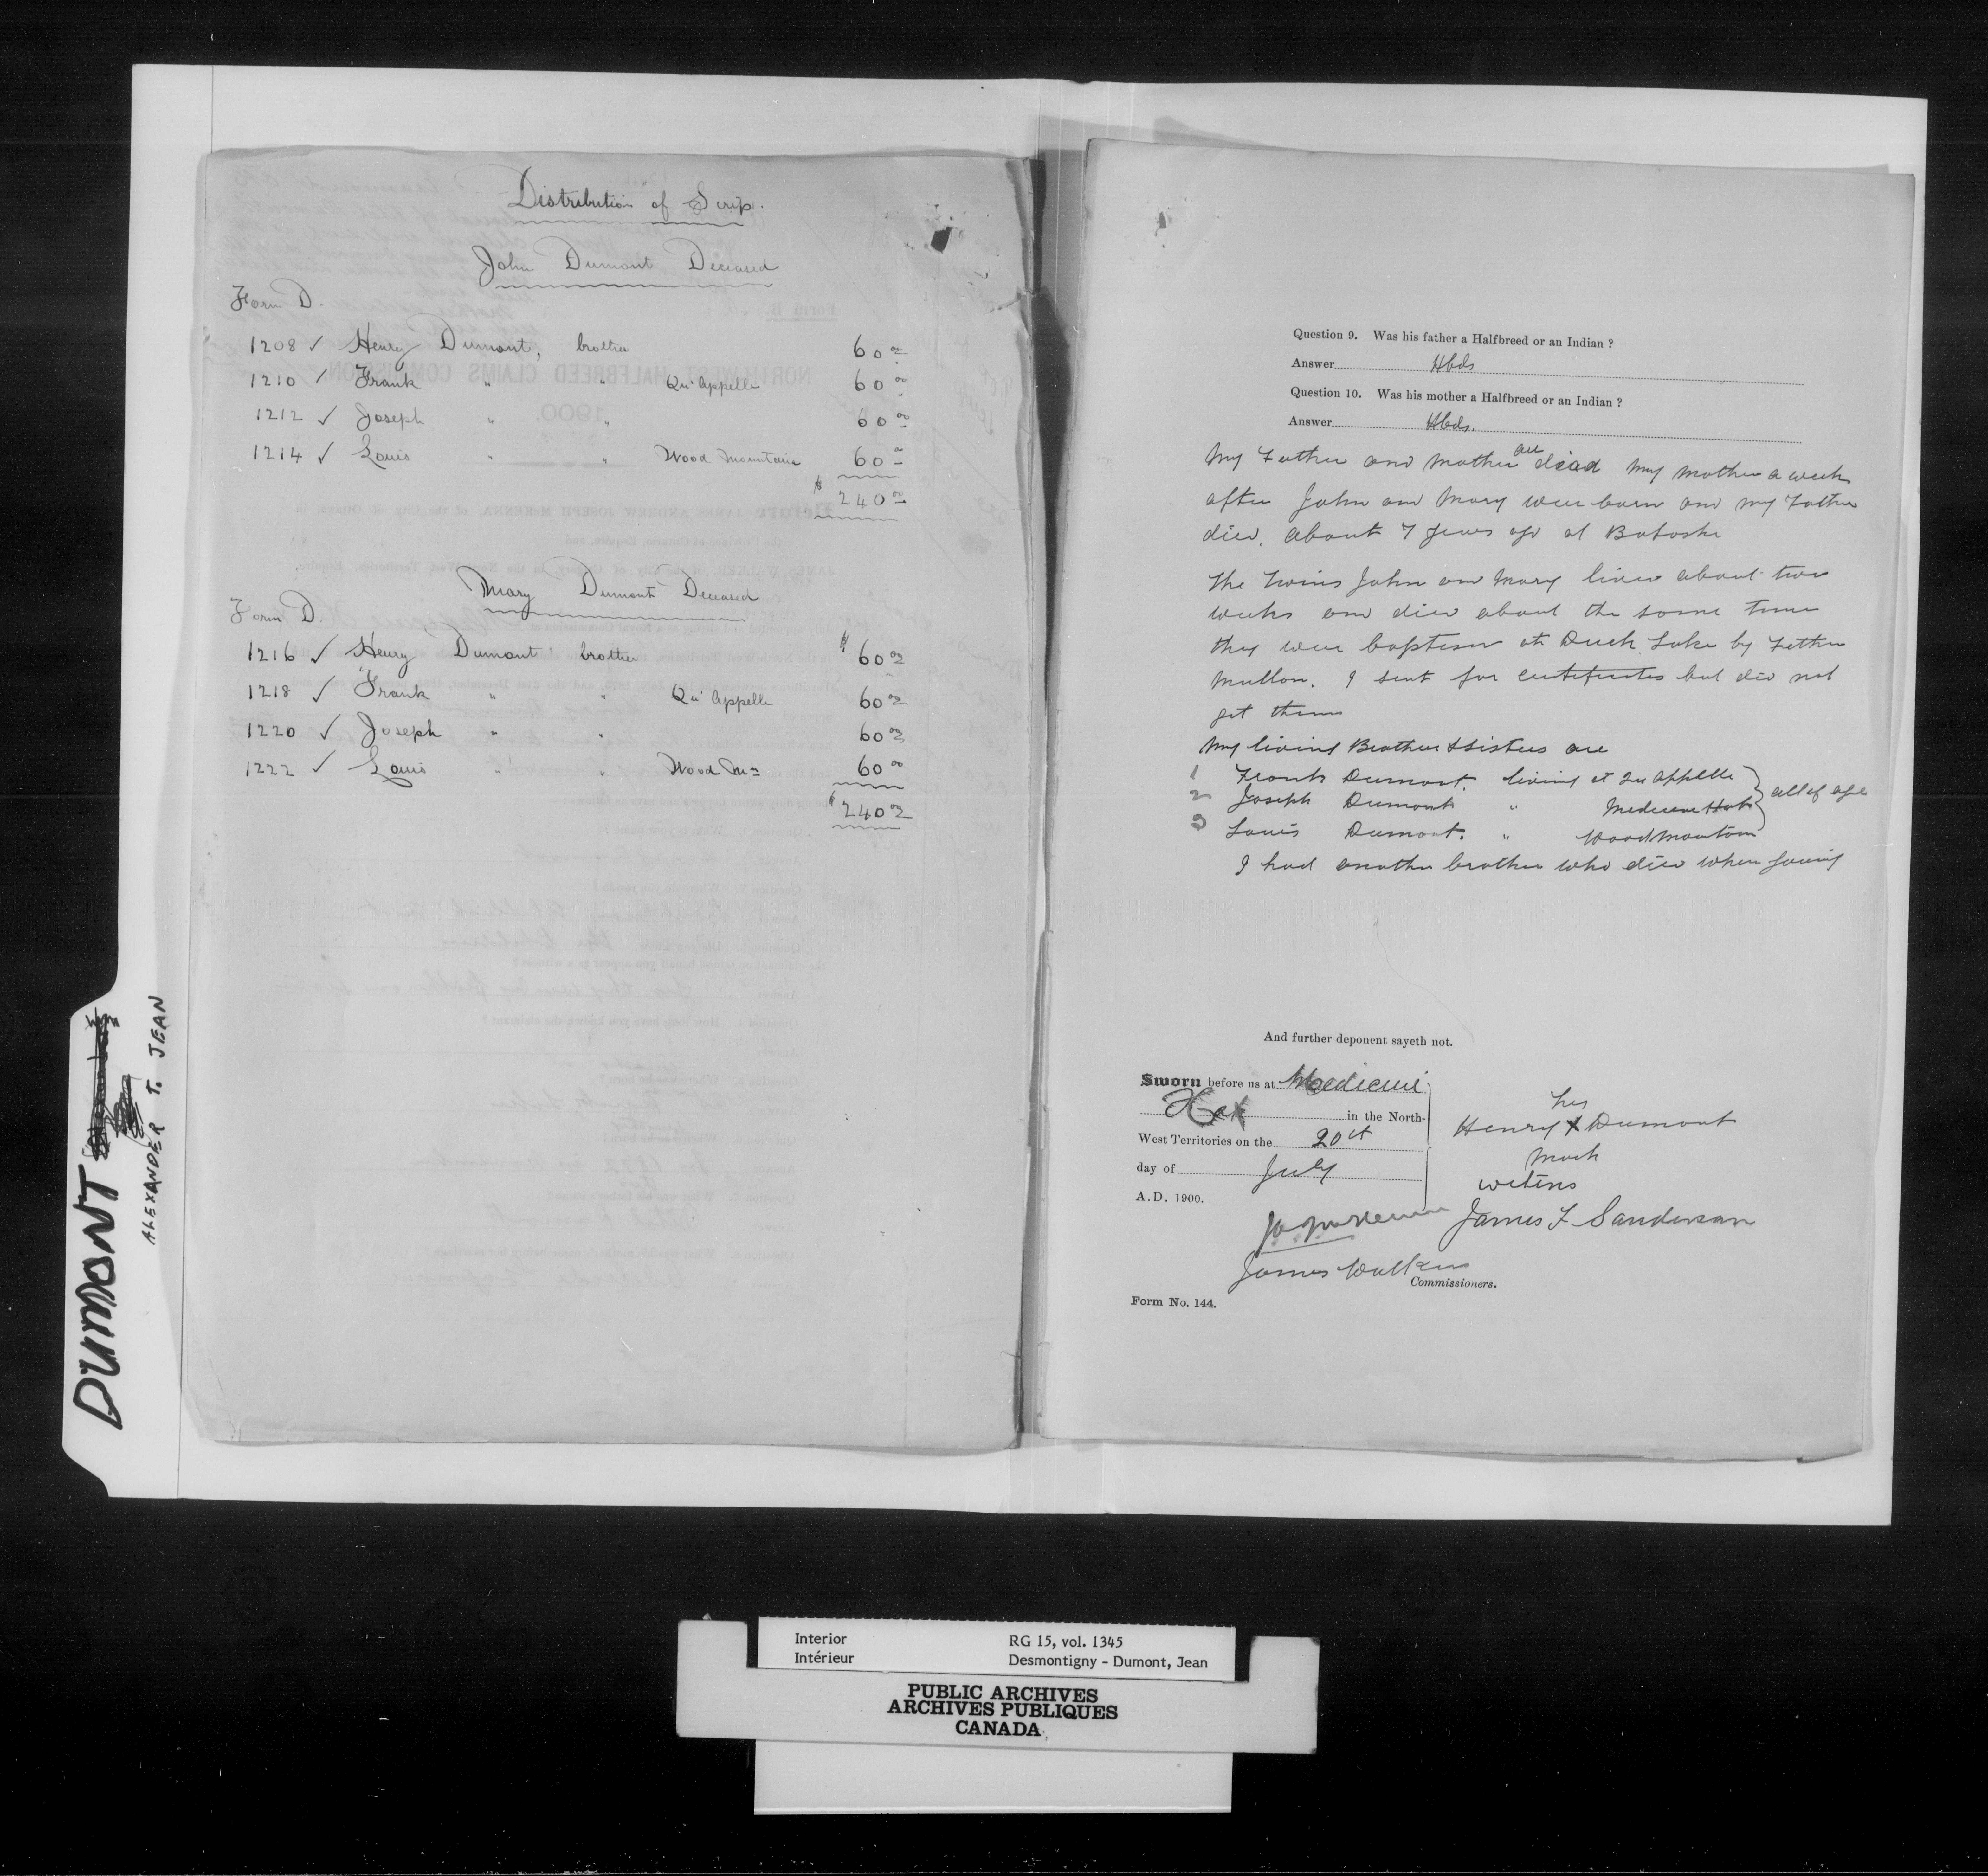 Distribution of Scrip.
John Dumont Deceased
Form D.
1208 ✓ Henry Dumont, brother 60 00
1210 ✓ Frank " " Qu'Appelle 60 00
1212 ✓ Joseph " " 60 00
1214 ✓ Louis " " Wood Mountain 60 00
$ 240 00
Mary Dumont Deceased
Form D.
1216 ✓ Henry Dumont brother $ 60 00
1218 ✓ Frank " " Qu'Appelle 60 00
1220 ✓ Joseph " " 60 00
1222 ✓ Louis " " Wood Mn 60 00
$ 240 00
DUMONT
ALEXANDER T. JEAN
Question 9. Was his father a Halfbreed or an Indian ?
Answer Hbds
Question 10. Was his mother a Halfbreed or an Indian ?
Answer Hbds.
My Father and Mother are dead my mother a week
after John and Mary were born and my Father
died, about 7 years ago at Batoche
The Twins John and Mary lived about two
weeks and died about the same time
they were baptised at Duck Lake by Father
I sent for certificates but did not
get them
My living Brothers & Sisters are
1 Frank Dumont, living at Qu Appelle
2 Joseph Dumont " Medicine Hat } all of age
3 Louis Dumont. " Wood Mountain
I had another brother who died when young
And further deponent sayeth not.
Sworn before us at Medicine
Hat in the North-
West Territories on the 20th
day of July
A.D. 1900.
his
Henry X Dumont
mark
witness
James F Sanderson
James Walker
Commissioners.
Form No. 144.
Interior RG 15, vol. 1345
Intérieur Desmontigny - Dumont, Jean
PUBLIC ARCHIVES
ARCHIVES PUBLIQUES
CANADA